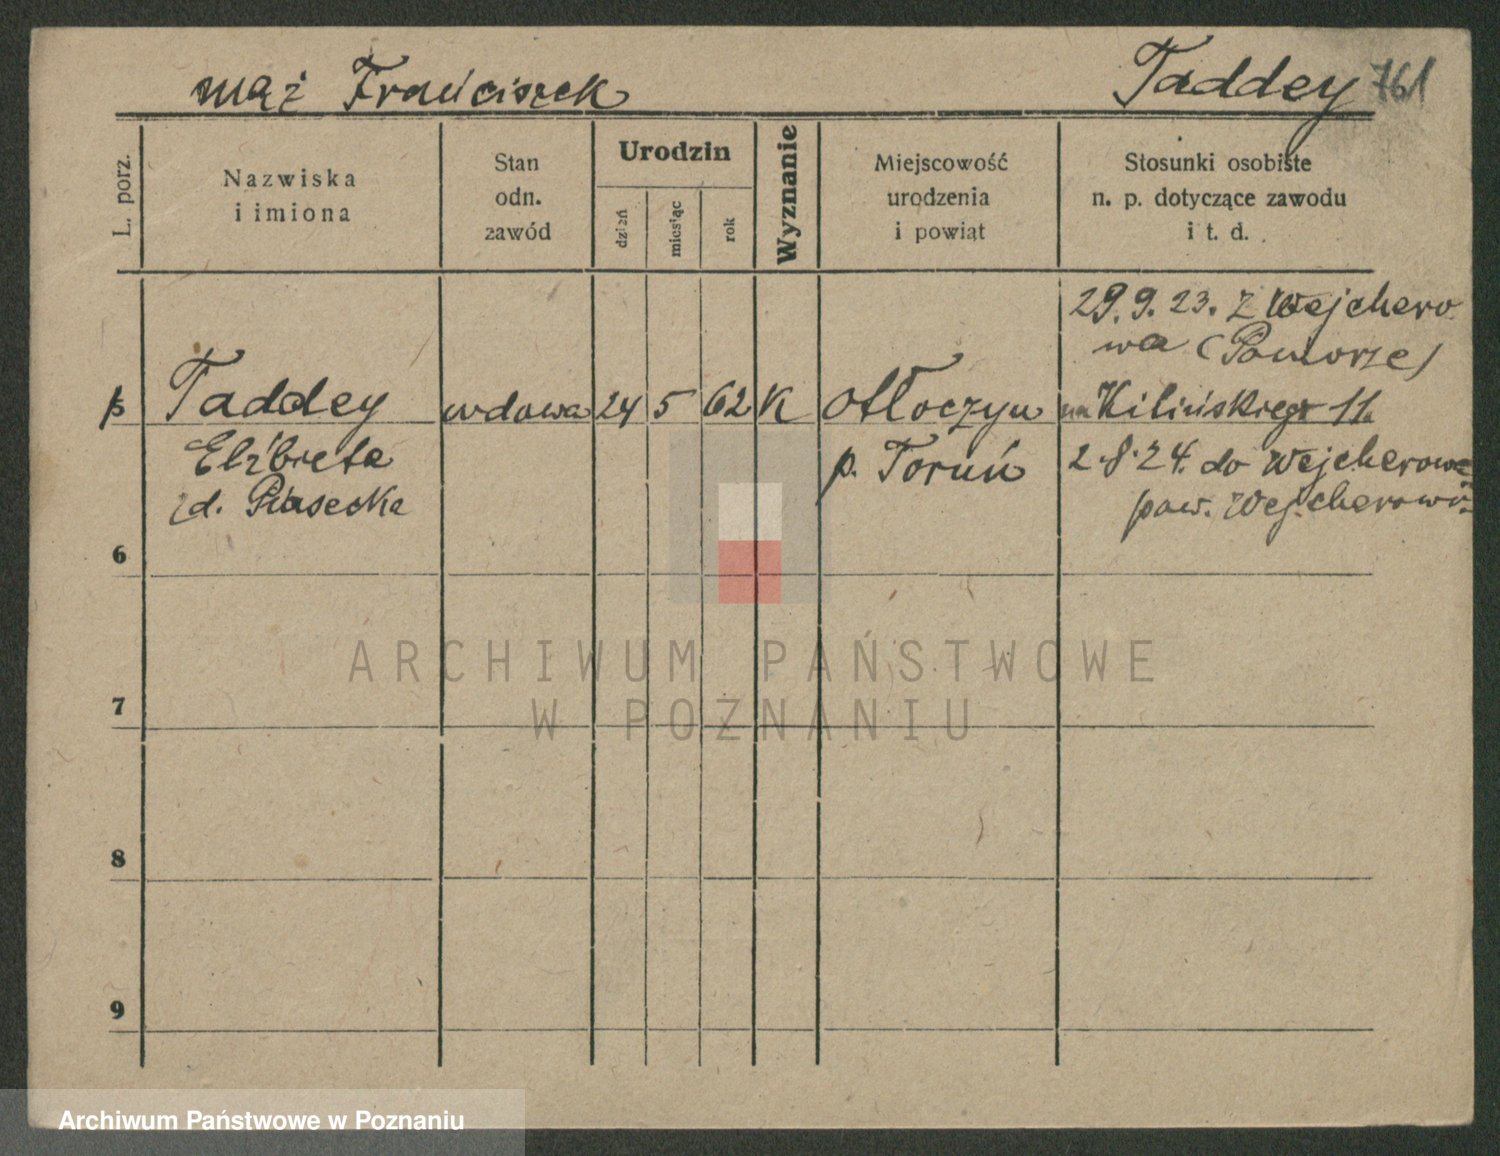 mąż Franciszek Taddey 761
L. porz.
Nazwiska
i imiona
Stan
odn.
zawód
Urodzin
dzień
miesiąc
rok
Wyznanie
Miejscowość
urodzenia
i powiat
Stosunki osobiste
n. p. dotyczące zawodu
i t. d.
29. 9. 23. z Wejchero
wa (Pomorze)
5 Taddey wdowa 24 5 62 K Otłoczyn na Kilińskiego 11.
Elżbieta p. Toruń 2. 8. 24. do Wejcherowa
d. Piasecka pow. Wejcherowo
6
7
8
9
ARCHIWUM PAŃSTWOWE
W POZNANIU
Archiwum Państwowe w Poznaniu